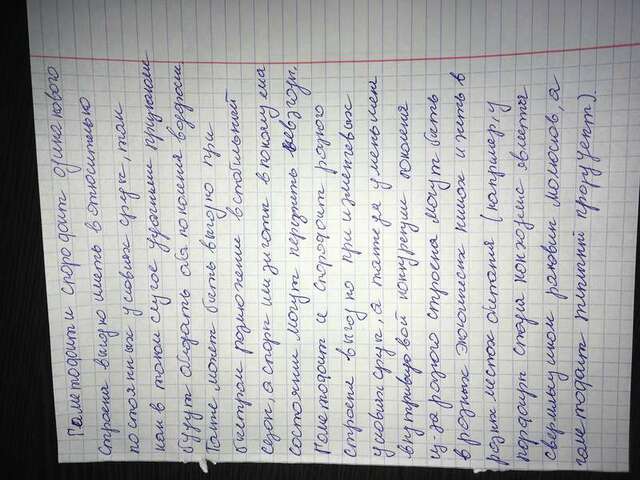 Гаметофит и спорофит одинакового
строена выгодно иметь в относительно
постоянных условиях среды, так
как в таком случае удачными признаками
будут обладать оба поколения водоросли.
Также может быть выгодно при
быстром размножение в стабильный
сезон, а споры или зиготы в покоящемся
состоянии могут пережить невзгоды.
Гаметофит и спорофит разного
строена выгодно при изменчевых
условиях среды, а также для уменьшена
внутривидовой конкуренции поколена
из-за разного строена могут быть
в разных экологических нишах и жить в
разных местах обитания (например, у
порфиры стадия конхоцелис является
сверлильщиком раковин молюсков, а
гаметофит типичный продуцент).